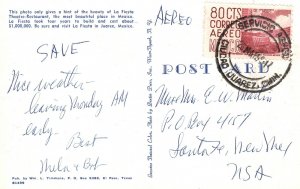 This photo only gives a hint of the beauty of La Fiesta
Theatre-Restaurant, the most beautiful place in Mexico.
La Fiesta took four years to build and cost about
$1,000,000. Be sure and visit La Fiesta in Juarez, Mexico.
SAVE
Nice weather -
leaving Monday AM
early.
Best
Pub. by Wm. L. Timmons, P. O. Box
El Paso, Texas
AEREO
80 CTS
AEREO
SERVICIO
JUAREZ, CHIH.
POST CARD
Mr & Mrs E. W. Martin
P.O. Box 4157
Santa Fe, New Mex
USA